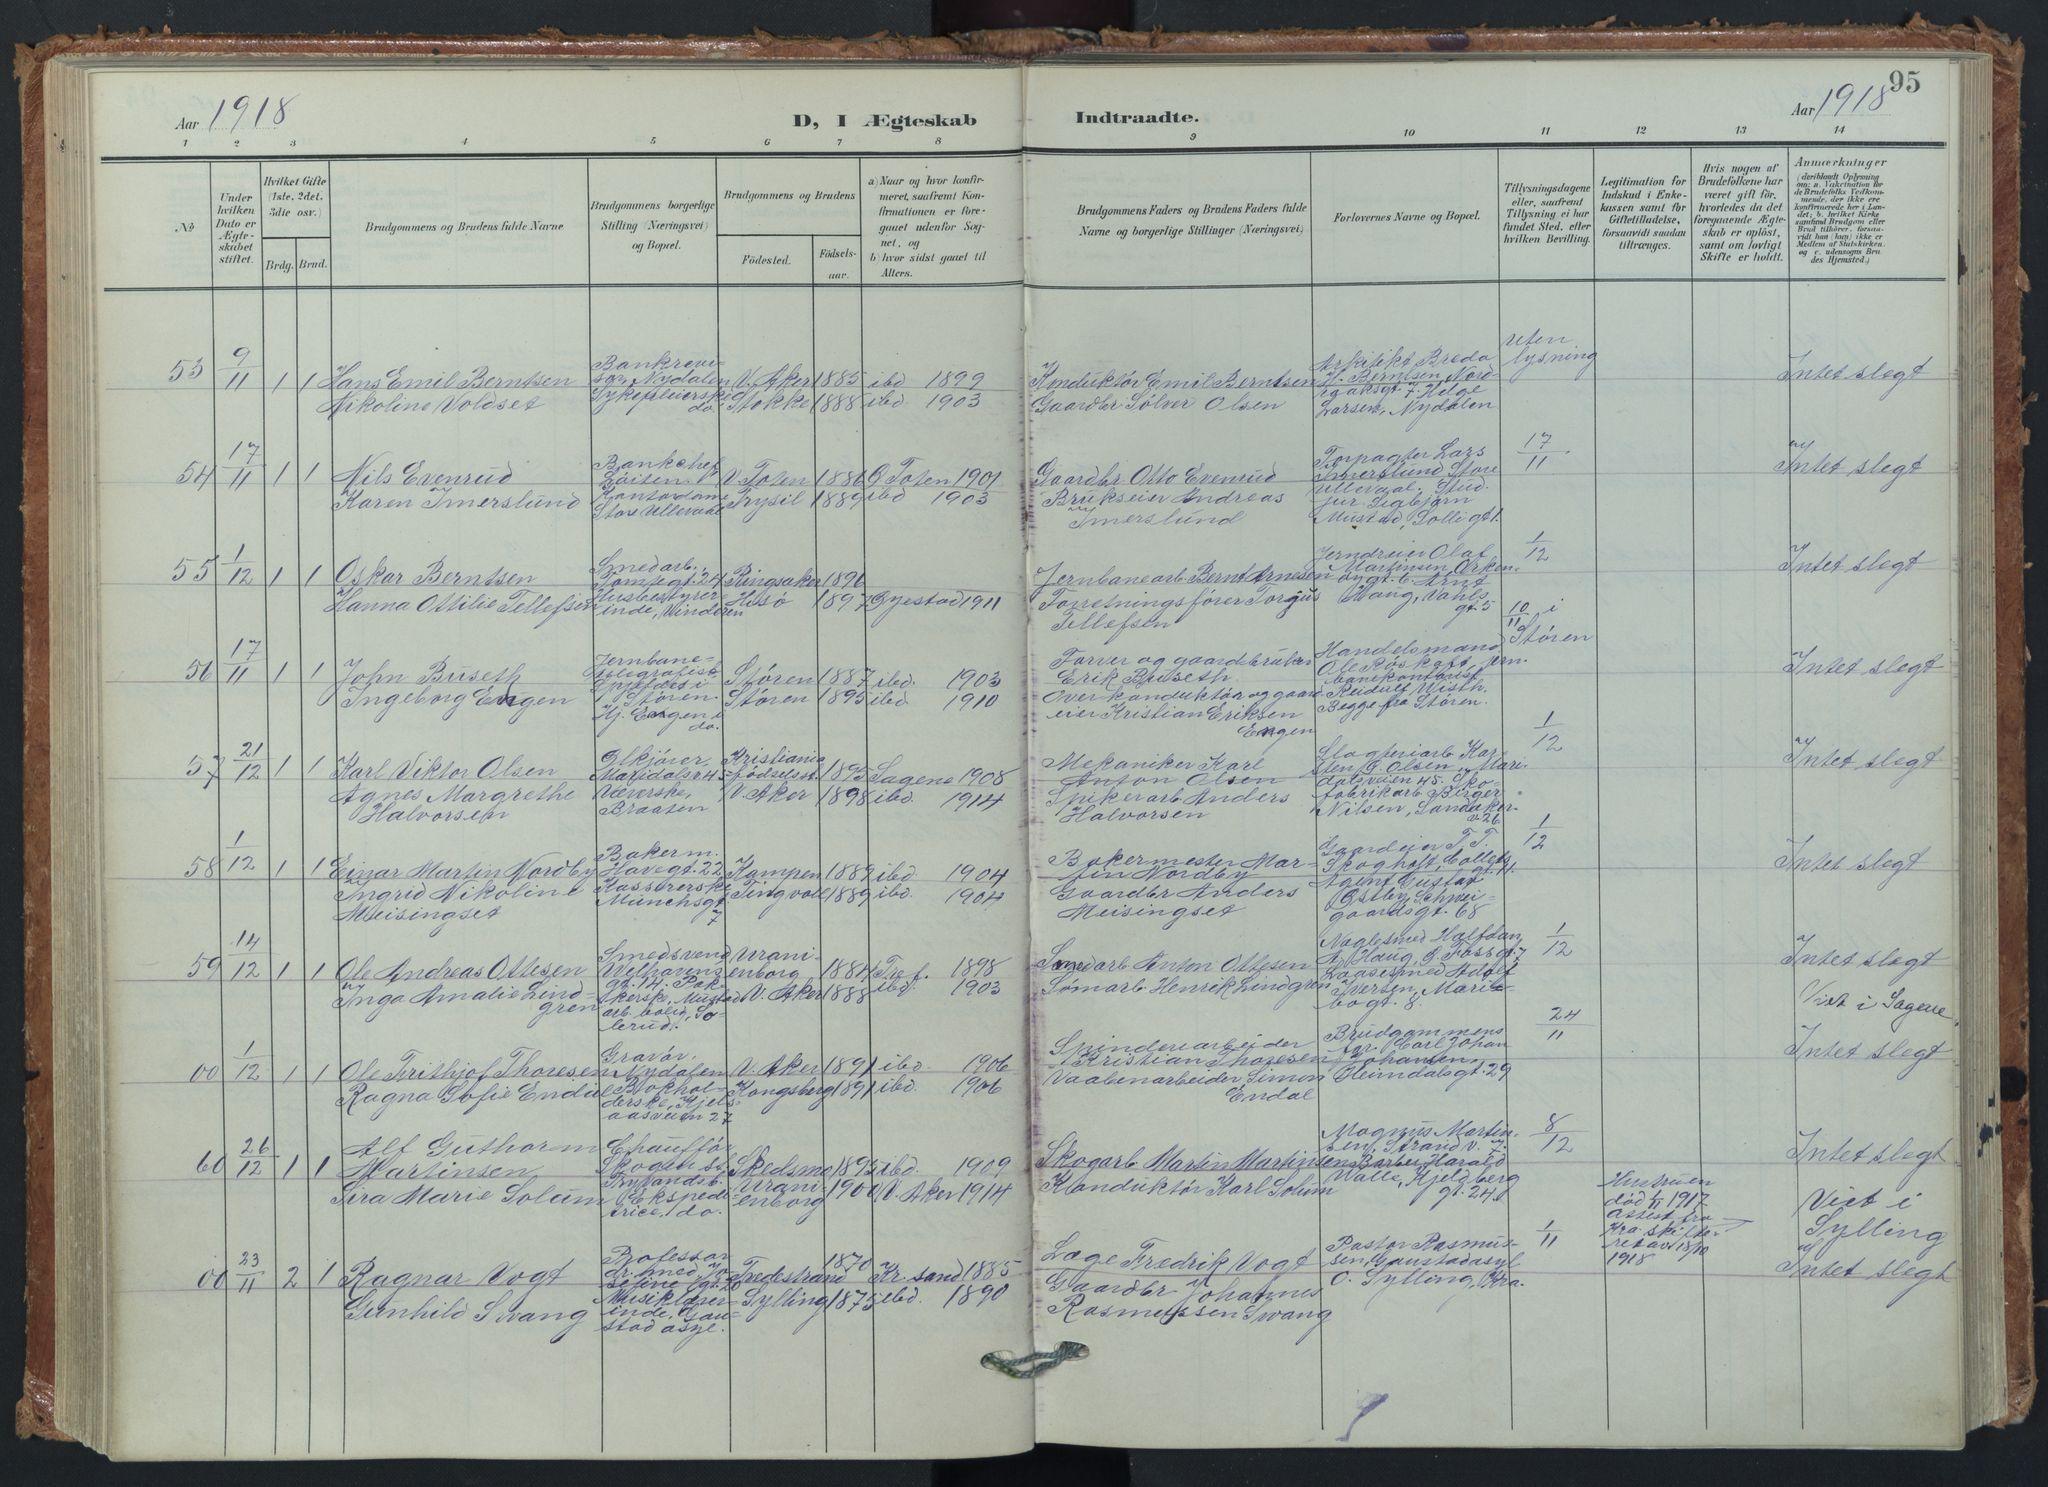 Aar 1918
D, I Ægteskab
Indtraadte.
Aar 1918
95
1 2 3 4 5 6 7 8 9 10 11 12 13 14
No
Under hvilken Dato er Ægteskabet stiftet.
Hvilket Gifte (1ste, 2det, 3die osv.)
Brdg. Brud.
Brudgommens og Brudens fulde Navne
Brudgommens borgerlige Stilling (Næringsvei) og Bopæl.
Brudgommens og Brudens
Fødested.
Fødselsaar.
a) Naar og hvor konfirmeret, saafremt Konfirmationen er foregaaet udenfor Sognet, og
b) hvor sidst gaaet til Alters.
Brudgommens Faders og Brudens Faders fulde Navne og borgerlige Stillinger (Næringsvei)
Forlovernes Navne og Bopæl.
Tillysningsdagene eller, saafremt Tillysning ei har fundet Sted, efter hvilken Bevilling.
Legitimation for Indskud i Enkekassen samt for Giftetilladelse, forsaavidt saadan tiltrænges.
Hvis nogen af Brudefolkene har været gift før, hvorledes da det foregaaende Ægteskab er opløst, samt om lovligt Skifte er holdt.
Anmærkninger
(deriblandt Oplysning om: a. Vakcination for de Brudefolks Vedkommende, der ikke ere konfirmerede her i Landet; b. hvilket Kirkesamfund Brudgom eller Brud tilhører, forsaavidt han (hun) ikke er Medlem af Statskirken, og c. udensogns Brudes Hjemsted.)
53 9/11 1 1 Hans Emil Berntsen Bankrevisor, Nydalen V. Aker 1885 ibd 1899 Konduktør Emil Berntsen Arkitekt Breda H. Berntsen Nordraaksgt. 7 Helge Larsen, Nydalen uten lysning Intet slegt
Nikoline Voldset Sykepleierske do. Stokke 1888 ibd. 1903 Gaardbr Sølver Olsen
54 17/11 1 1 Nils Evenrud Bankchef V. Toten 1886 Ø. Toten 1901 Gaardbr Otto Evenrud Forpagter Lars Imerslund Store Ullevaal. Stud. jur. Sigbjørn Mustad, Solligt 1. 17/11 Intet slegt
Karen Imerslund Kontordame Store Ullevaal Trysil 1889 ibd 1903 Brukseier Andreas Imerslund
55 1/12 1 1 Oskar Berntsen Smedarb., Tomtegt. 24 Ringsaker 1896 Jernbanearb. Bernt Arnesen Olaf Martinsen Arnt Haug, Vahls gt. 5 1/12 Intet slegt
Hanna Ottilie Tellefsen Husbestyrerinde, Vinderen Hisø 1897 Øyestad 1911 Forretningsfører Torjus Tellefsen
56 17/11 1 1 John Buseth Jernbanetelegrafist Støren 1887 ibd. 1903 Farver og gaardbruker Erik Buseth. Handelsmand Ole Røskaft, jernbanekontorist Reidulf Wisth. Begge fra Støren. 10/11 i Støren Intet slegt
Ingeborg Engen Støren. Hj. Engen i do. Støren 1895 ibd. 1910 Overkonduktør og gaardeier Kristian Eriksen Engen
57 21/12 1 1 Karl Viktor Olsen Ølkjører, Maridalsv. 45 Kristiania fødselsst. 1895 Sagene 1908 Mekaniker Karl Anton Olsen Slagteriarb Karsten G. Olsen Maridalsveien 45. Skofabrikarb Birger Nilsen, Sandakerv. 26 1/12 Intet slegt
Agnes Margrethe Halvorsen Væverske, Braaten V. Aker 1898 ibd. 1914 Spikerarb Anders Halvorsen
58 1/12 1 1 Einar Martin Nordby Bakerm. Havegt. 22 Kampen 1889 ibd. 1904 Bakermester Martin Nordby Gaardeier T. T. Skoghoft, Colletsgt. 11. Agent Gustav Østby, Schweigaardsgt. 68 1/12 Intet slegt
Ingrid Nikoline Meisingset Kassererske Münchsgt. 7 Tingvoll 1889 ibd. 1904 Gaardbr Anders Meisingset
59 14/12 1 1 Ole Andreas Ottesen Smedsvend Welhavensgt. 14. Uranienborg 1884 Tref. 1898 Smedarb Anton Ottesen Naglesmed Halfdan A. Haug, Ø. Fossgt. 7 Laasesmed Adolf Iversen, Maribogt. 8. 1/12 Intet slegt
Inga Amalie Lindgren Pakkerske, Mustad arb. bolig, Solerud. V. Aker 1888 ibd. 1903 Sømarb Henrik Lindgren
Viet i Sagene.
00 1/12 1 1 Ole Frithjof Thoresen Gravør, Nydalen V. Aker 1891 ibd. 1906 Spinderiarbeider Kristian Thoresen Brudgommens fr. Carl Johan Johansen Øimdalsgt. 29 24/11 Intet slegt
Ragna Sofie Endal Bokholderske, Kjelsaasveien 27 Kongsberg 1891 ibd. 1906 Vaabenarbeider Simon Endal
60 26/12 1 1 Alf Guthorm Martinsen Chauffør Skogen st. Skedsmo 1893 ibd. 1909 Skogarb Martin Martinsen Magnus Martinsen, Strand v. 7. Barber Harald Walle, Kjeldberggt. 24. 8/12 Intet slegt
Sira Marie Solum Ekspeditrice, do. Uranienborg 1900 V. Aker 1914 Konduktør Karl Solum
00 23/11 2 1 Ragnar Vogt Professor dr. med. Tvedestrand 1870 Kr. sand 1885 Læge Fredrik Vogt Pastor Rasmussen, Gaustadasyl O. Sylling, Kra. 1/11 Hustruen død 1/11 1917. Attest fra Kra. skifteret av 18/10 1918 Viet i Sylling Intet slegt
Gunhild Svang Musiklærerinde, Gaustad asyl. Sylling 1875 ibd. 1890 Gaardbr Johannes Rasmussen Svang